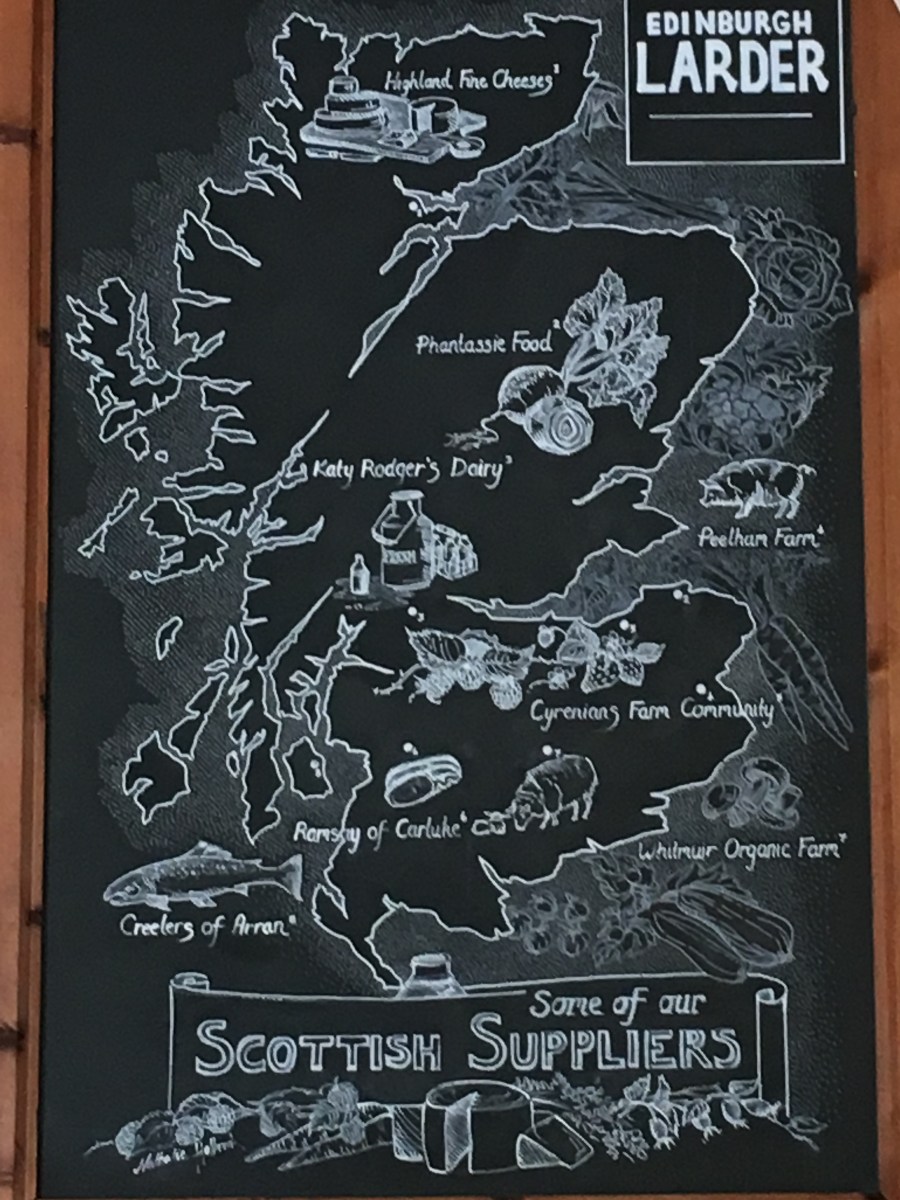 EDINBURGH
LARDER
Highland Fine Cheeses¹
Phantassie Food²
Katy Rodger's Dairy³
FRESH
Peelham Farm⁴
Cyrenians Farm Community⁵
Ramsay of Carluke⁶
Whitmuir Organic Farm⁷
Creelers of Arran⁸
Some of our
SCOTTISH SUPPLIERS